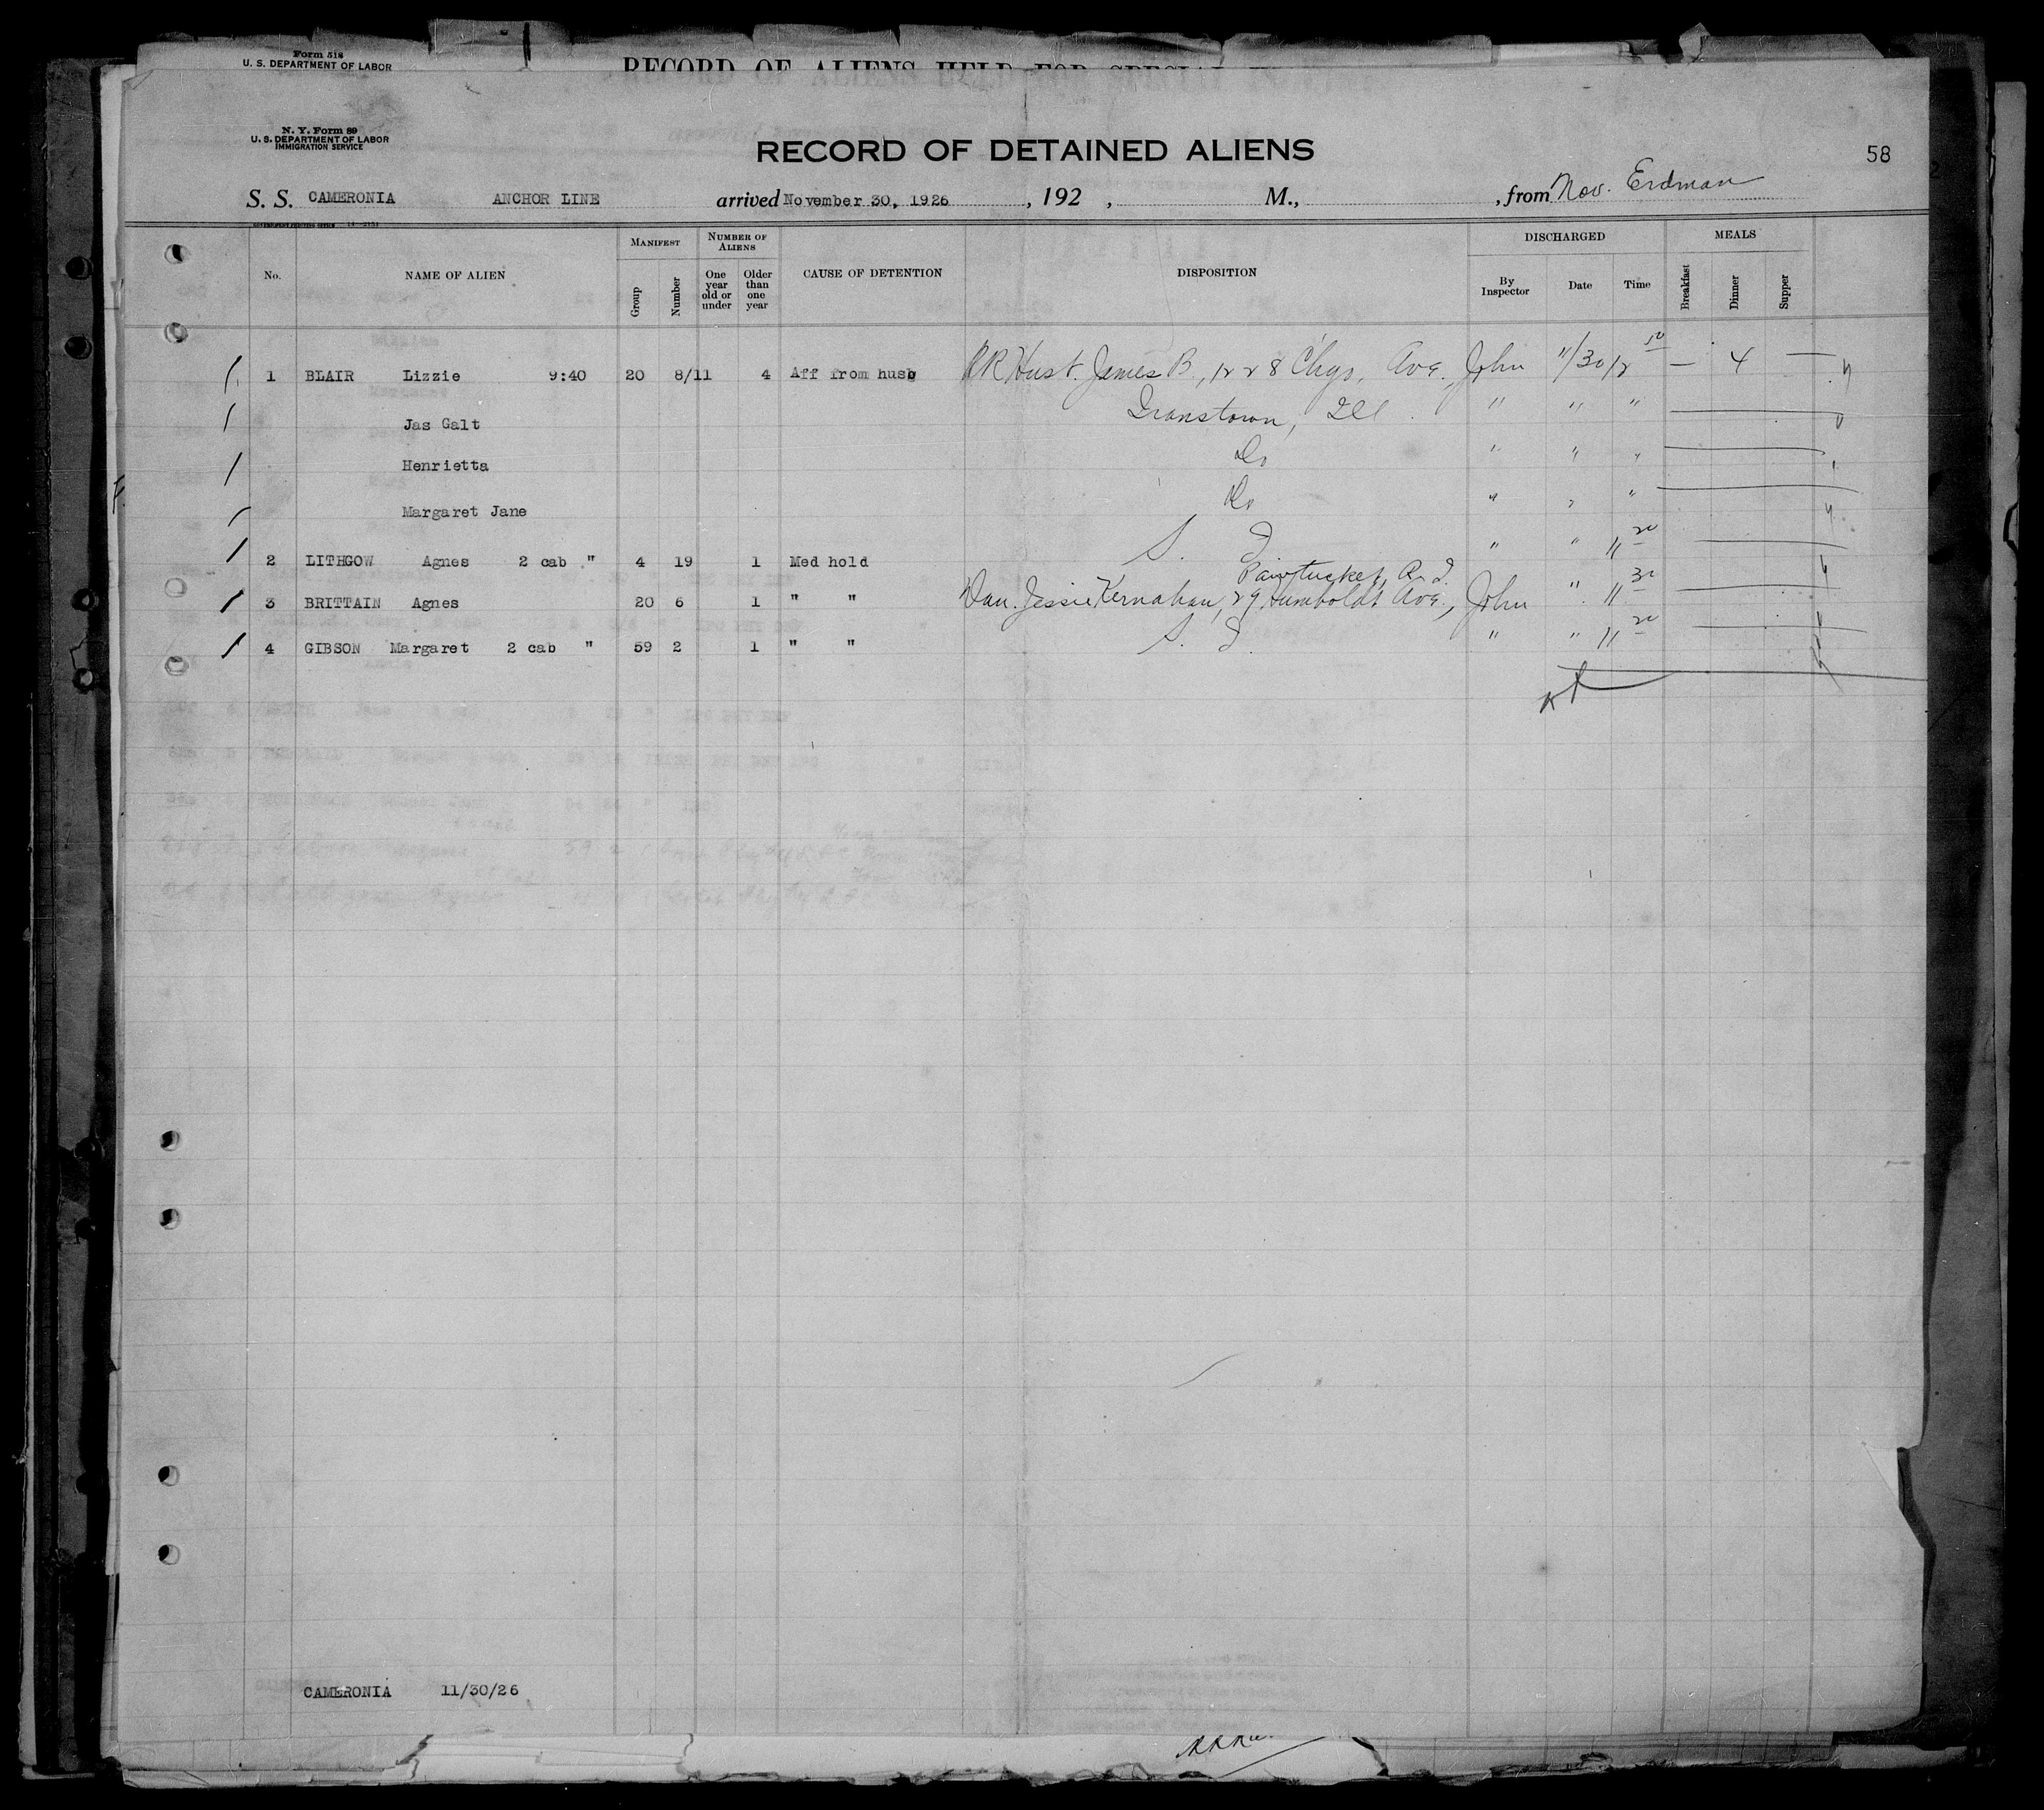 Form 518
U. S. DEPARTMENT OF LABOR
RECORD OF ALIENS HELD FOR SPECIAL
N. Y. Form 89
U. S. DEPARTMENT OF LABOR
IMMIGRATION SERVICE
RECORD OF DETAINED ALIENS
58
S. S. CAMERONIA ANCHOR LINE arrived November 30, 1926, 192 , M., , from Nov. Erdman
No. NAME OF ALIEN MANIFEST Group Number NUMBER OF ALIENS One year old or under Older than one year CAUSE OF DETENTION DISPOSITION DISCHARGED By Inspector Date Time MEALS Breakfast Dinner Supper
1 BLAIR Lizzie 9:40 20 8/11 4 Aff from husb RR Hust. James B., 1228 Chgo. Ave. John 11/30 12 50 — 4 —
Jas Galt Ivanstown, Ill. " " "
Henrietta Do " " "
Margaret Jane Do " " "
2 LITHGOW Agnes 2 cab " 4 19 1 Med hold S. I " " 11 20
Pawtucket, R. I.
3 BRITTAIN Agnes 20 6 1 " " Dau. Jessie Kernahan, 29 Humboldt Ave., John " 11 30
4 GIBSON Margaret 2 cab " 59 2 1 " " S. I. " " 11 20
CAMERONIA 11/30/26